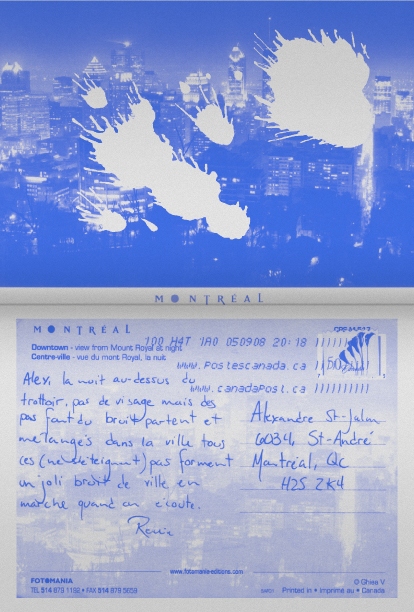 MONTRÉAL
MONTRÉAL
Downtown - view from Mount Royal at night
Centre-ville - vue du mont Royal, la nuit
100 H4T 1A0 050908 20:18
www.postescanada.ca
www.canadapost.ca
Alex, la nuit au-dessus du
trottoir, pas de visage mais des
pas font du bruit partent et
mélangés dans la ville tous
ces pas forment
un joli bruit de ville en
marche quand on écoute.
Alexandre St-Jalm
6034, St-André
Montréal, Qc
H2S 2K4
www.fotomania-editions.com
FOTOMANIA
TEL 514 879 1192 • FAX 514 879 5659
© Ghiea V
Printed in • Imprimé au • Canada